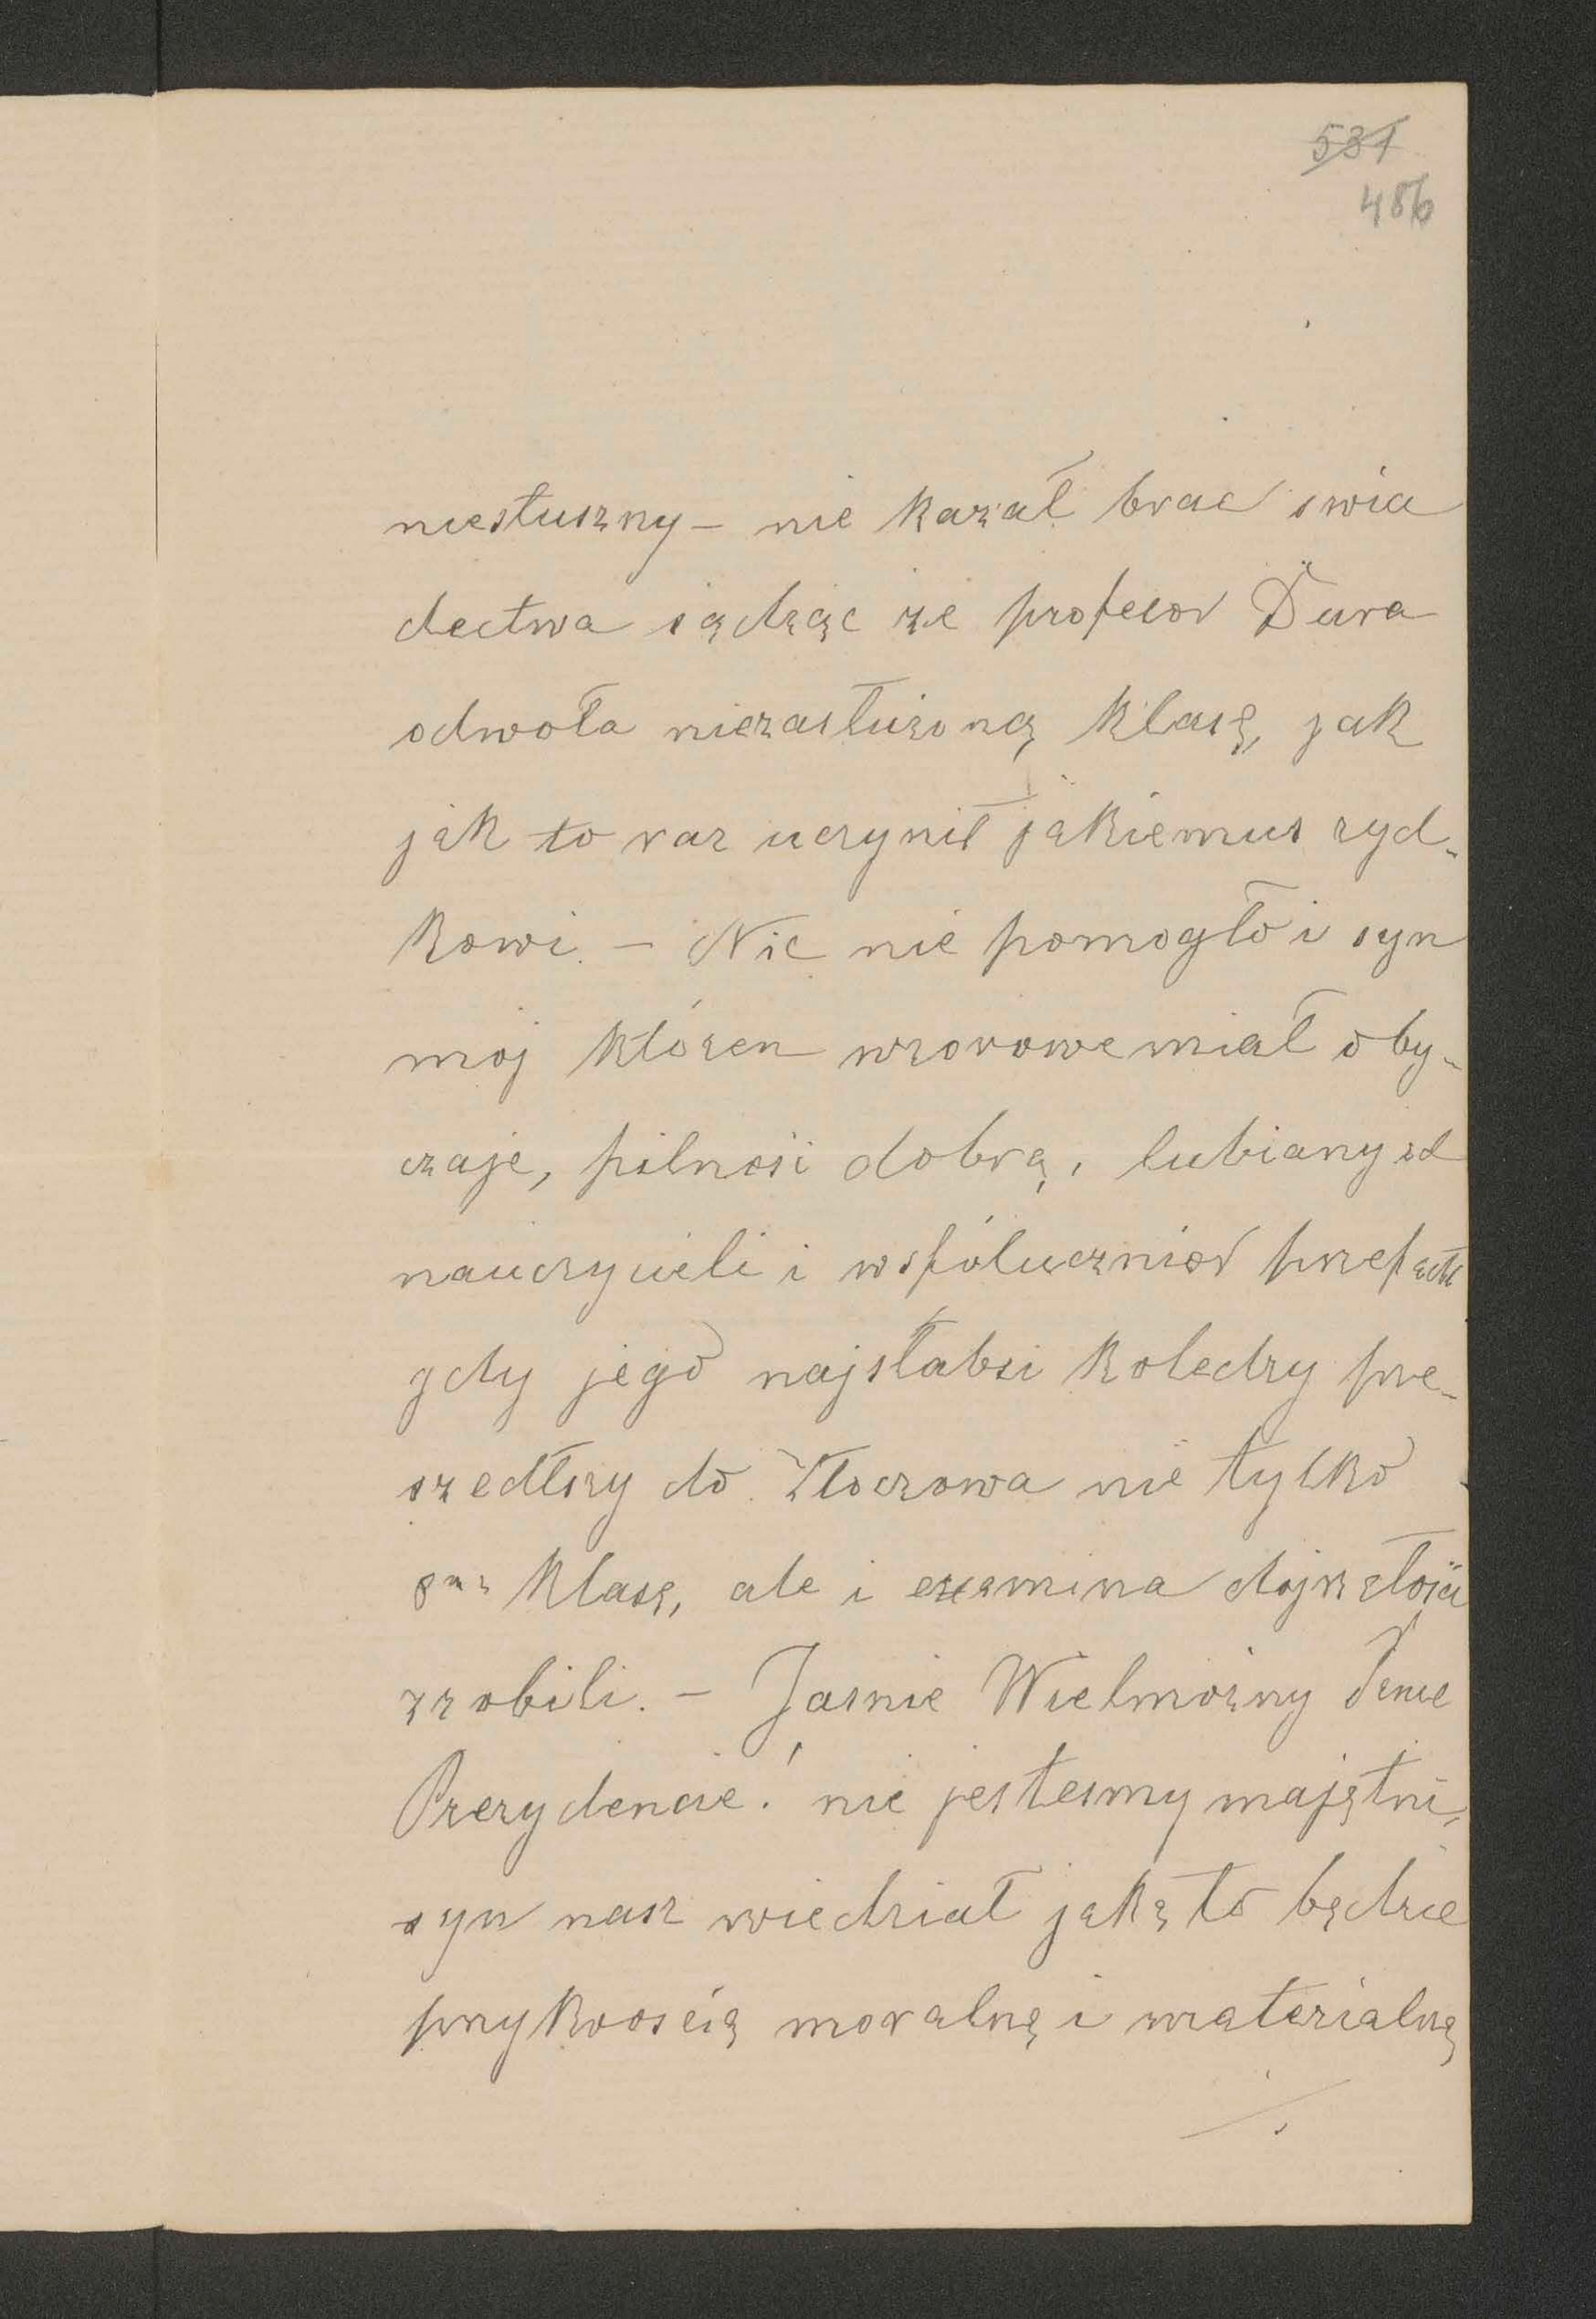 531
486
niesłuszny – nie kazał brać swia
dectwa sądząc że profesor Ďura
odwoła niezasłużoną klasę, jak
jak to raz uczynił jakiemus żyd-
kowi. – Nic nie pomogło i syn
moj ktören wzorowe miał oby-
czaje, pilność dobrą, lubiany od
nauczycieli i wspóluczniów przepadł
gdy jego najsłabsi koledzy prze-
szedłszy do Złoczowa nie tylko
8mą klasę, ale i examina dojrzałości
zrobili. – Jasnie Wielmożny Panie
Prezydencie! nie jestesmy majętni,
syn nasz wiedział jaką to będzie
przykrością moralną i materialną
./.